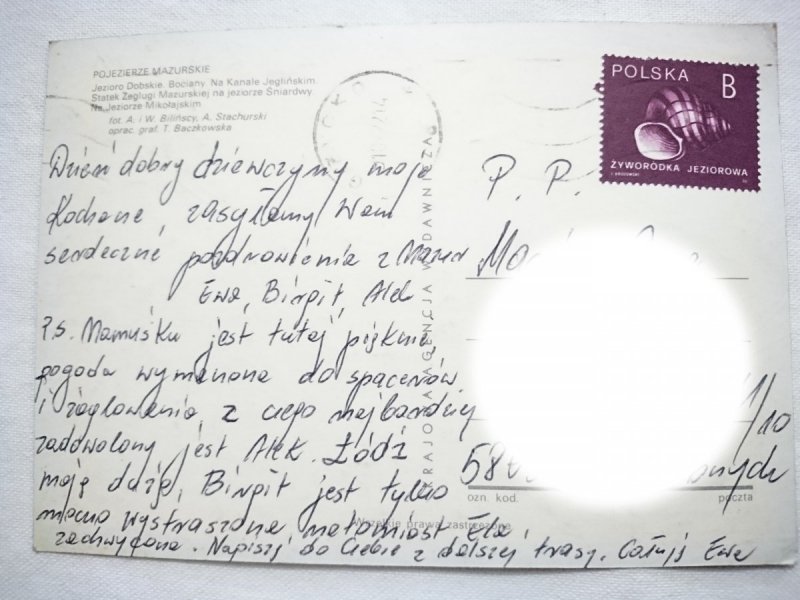 POJEZIERZE MAZURSKIE
Jezioro Dobskie. Bociany. Na Kanale Jeglińskim.
Statek Żeglugi Mazurskiej na jeziorze Śniardwy.
Na Jeziorze Mikołajskim
fot. A. i W. Bilińscy, A. Stachurski
oprac. graf. T. Baczkowska
POLSKA B
ŻYWORÓDKA JEZIOROWA
Dzień dobry dziewczyny moje
Kochane, zasyłamy Wam
serdeczne pozdrowienia z Mazur
Ewa, Birgit, Alek
P.s. Mamuśku jest tutaj pięknie,
pogoda wymarzona do spacerów
i żaglowania z ciego najbardziej
zadowolony jest Alek. Łódź
moją duże, Birgit jest tylko
mocno wystraszona natomiast Ela
zachwycona. Napiszę do Ciebie z dalszej trasy. Całuję Ewa
P. P.
1/10
58
nych
ozn. kod.
poczta
KRAJOWA AGENCJA WYDAWNICZA
Wszelkie prawa zastrzeżone